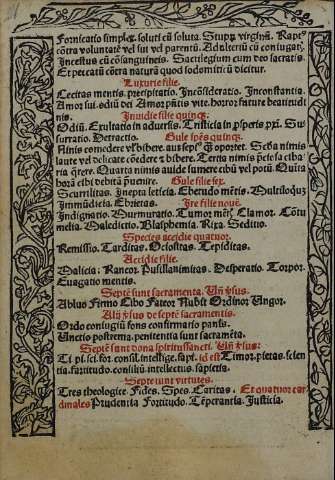 Fornicatio simplex. soluti cū soluta. Stuprū virginū. Rapt9
cōtra voluntatē vel sui vel parentū. Adulteriū cū coniugat;
Incestus cū cōsanguineis. Sacrilegium cum deo sacratis.
Et peccatū cōtra naturā quod sodomiticū dicitur.
Luxurie filie.
Cecitas mentis. precipitatio. Incōsideratio. Inconstantia.
Amor sui. odiū dei Amor pn̄tis vite. horror future beatitudi
nis.
Inuidie filie quinq3.
Odiū. Exultatio in aduersis. Tristicia in psperis pxi. Su
surratio. Detractio.
Gule sp̄es quinq3.
Nimis comedere vl' bibere. aut sepe
laute vel delicate comedere z bibere. Tertia nimis
ria q̄rere. Quarta nimis auide sumere cibū vel potū.
hora cibi debita
Gule filie sex.
Scurrilitas. Inepta leticia. Ebetudo mētis. Multiloquiū
Inmūdicia. Ebrietas.
Ire filie nouē.
Indignatio. Murmuratio. Tumor mētis. Clamor. Cōtu
melia. Maledictio. Blasphemia. Rixa. Seditio.
Species accidie quatuor.
Remissio. Tarditas. Ociositas. Tepiditas.
Accidie filie.
Malicia. Rancor. Pusillanimitas. Desperatio. Torpor.
Euagatio mentis.
Septē sunt sacramenta. Vn̄ ṽsus:
Abluo Firmo Cibo Fateor Nubit Ordinor Vngor.
Alij ṽsus de septē sacramentis.
Ordo coniugiū fons confirmatio panis.
Unctio postrema. penitentia sunt sacramēta.
Septē sunt dona spiritussancti. Vn̄ ṽsus:
Ti. pi. sci. for. consil. intellige. sapi. id est Timor. pietas. scien
tia. fortitudo. consiliū. intellectus. sapiētia.
Septe sunt virtutes.
Tres theologice. Fides. Spes. Caritas. Et quatuor car
dinales Prudentia Fortitudo. Tēperantia. Iusticia.